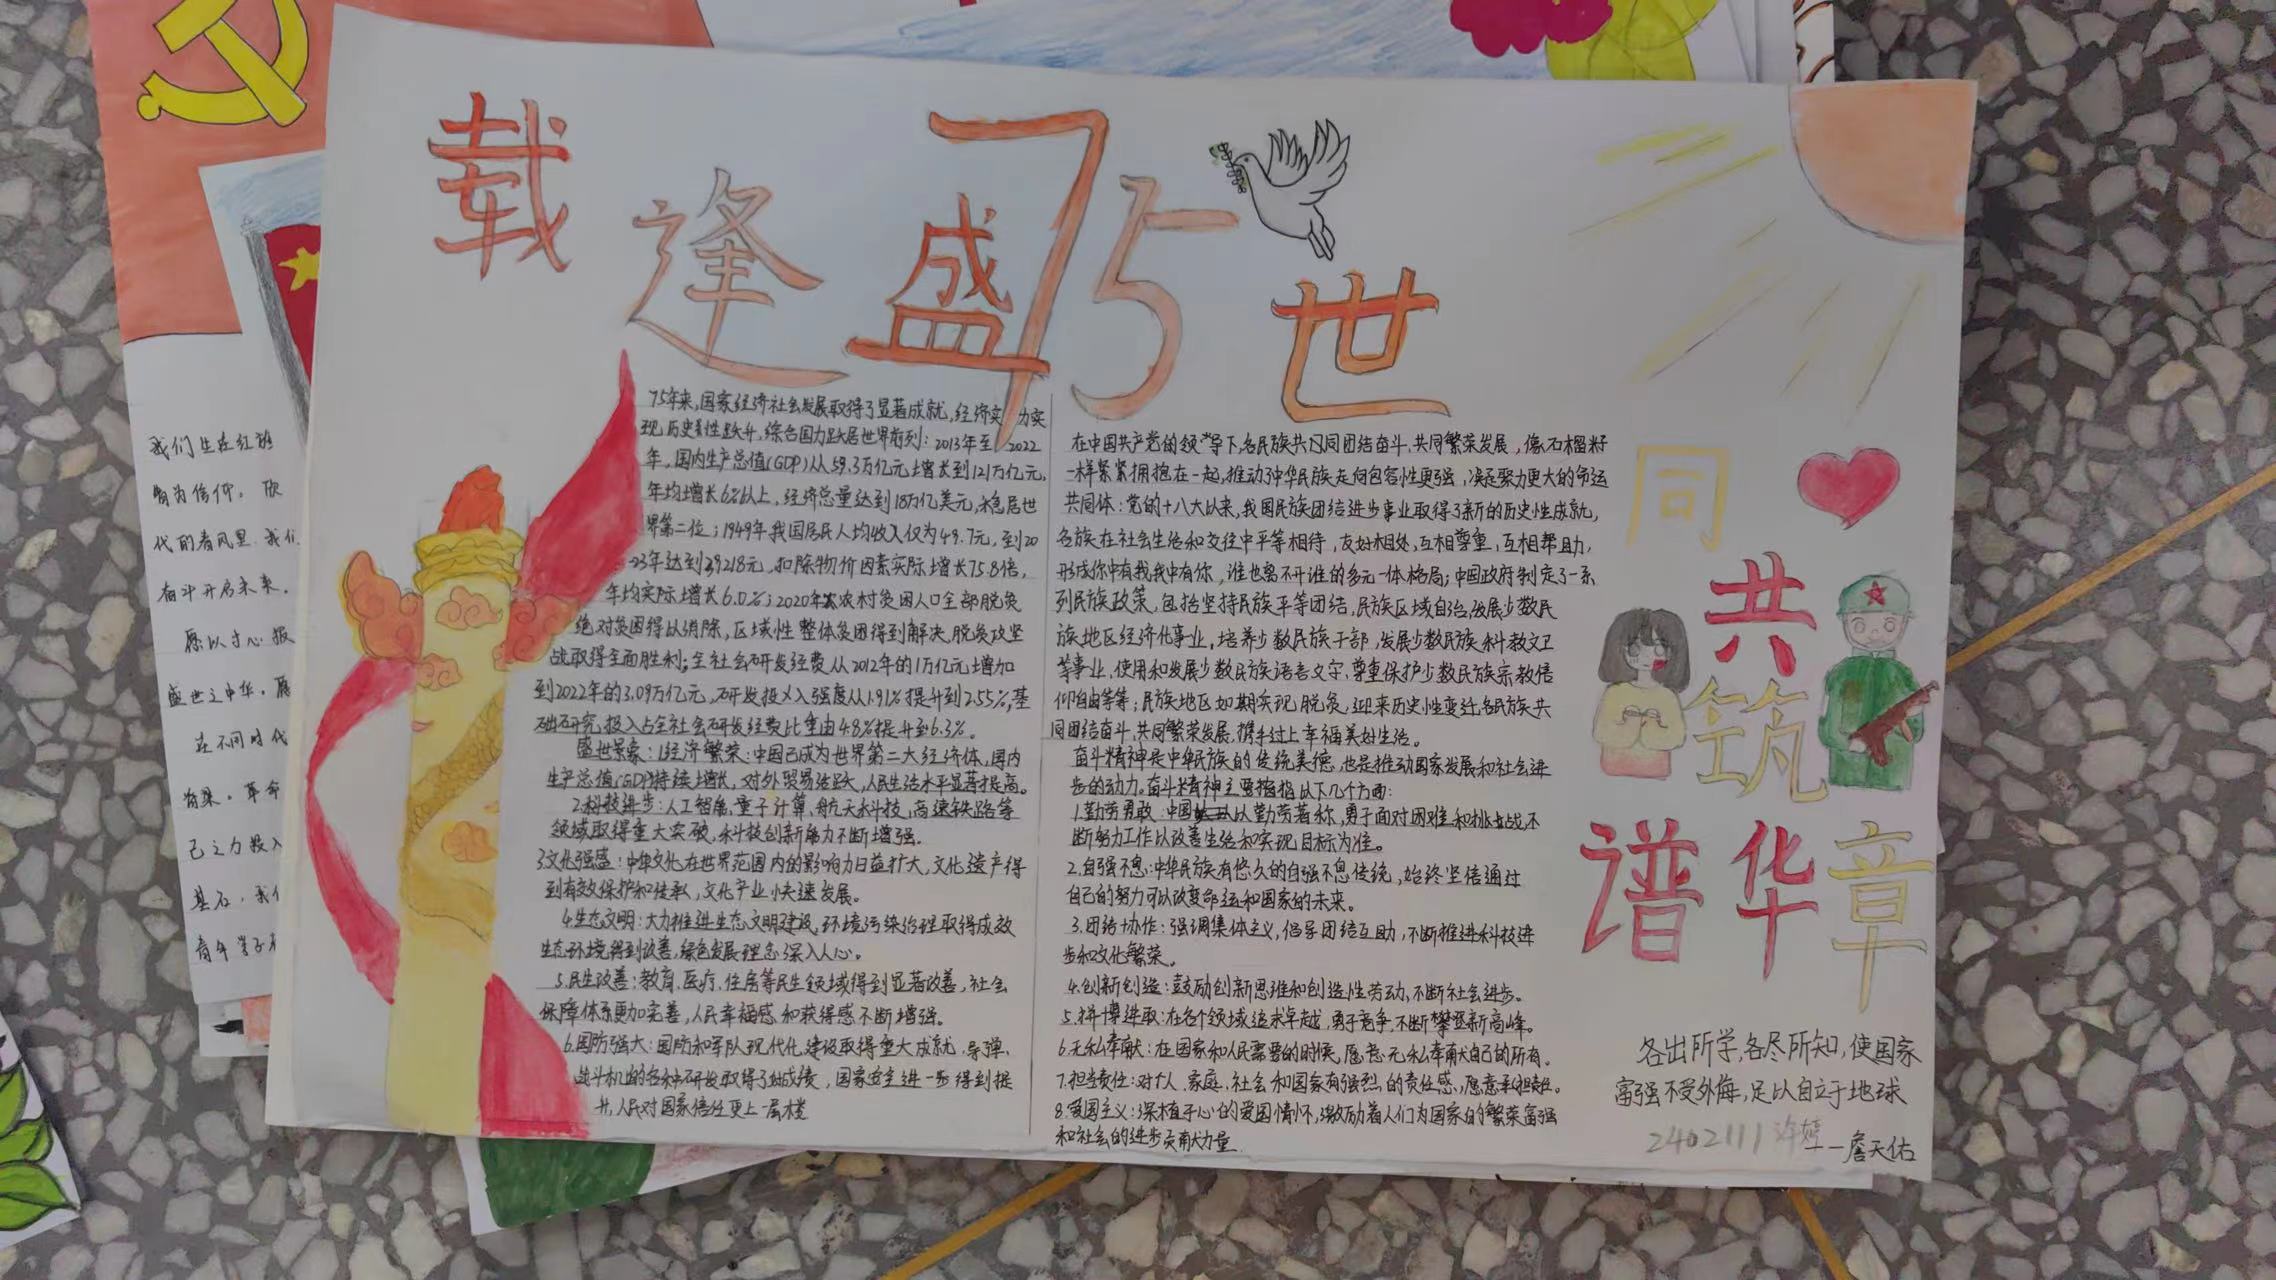 载逢盛75世
75年来,国家经济社会发展取得了显著成就,经济实力实
现历史性跃升,综合国力跃居世界前列:2013年至2022
年,国内生产总值(GDP)从59.3万亿元增长到121万亿元,
年均增长6%以上,经济总量达到18万亿美元,稳居世
界第二位;1949年我国居民人均收入仅为49.7元,到20
23年达到39218元,扣除物价因素实际增长75.8倍,
年均实际增长6.0%;2020年农村贫困人口全部脱贫
绝对贫困得以消除,区域性整体贫困得到解决,脱贫攻坚
战取得全面胜利;全社会研发经费从2012年的1万亿元增加
到2022年的3.09万亿元,研发投入强度从1.91%提升到2.55%,基
础研究投入占全社会研发经费比重由4.8%提升至6.3%。
盛世景象:1经济繁荣:中国已成为世界第二大经济体,国内
生产总值(GDP)持续增长,对外贸易活跃,人民生活水平显著提高。
2.科技进步:人工智能,量子计算,航天科技,高速铁路等
领域取得重大突破,科技创新能力不断增强.
3文化强盛:中华文化在世界范围内的影响力日益扩大,文化遗产得
到有效保护和传承,文化产业快速发展。
4.生态文明:大力推进生态文明建设,环境污染治理取得成效
生态环境得到改善,绿色发展理念深入人心。
5.民生改善:教育.医疗.住房等民生领域得到显著改善,社会
保障体系更加完善,人民幸福感和获得感不断增强。
6.国防强大:国防和军队现代化建设取得重大成就,导弹、
战斗机的各种研发取得了好成绩,国家安全进一步得到提
升,人民对国家信任更上一层楼
在中国共产党的领导下,各民族共同团结奋斗,共同繁荣发展,像石榴籽
一样紧紧拥抱在一起,推动了中华民族走向包容性更强,凝聚力更大的命运
共同体:党的十八大以来,我国民族团结进步事业取得了新的历史性成就,
各族在社会生活和交往中平等相待,友好相处,互相尊重,互相帮助,
形成你中有我我中有你,谁也离不开谁的多元一体格局;中国政府制定了一系
列民族政策,包括坚持民族平等团结,民族区域自治,发展少数民
族地区经济化事业,培养少数民族干部,发展少数民族科教文卫
等事业,使用和发展少数民族语言文字,尊重保护少数民族宗教信
仰自由等等;民族地区如期实现脱贫,迎来历史性变迁各民族共
同团结奋斗,共同繁荣发展,携手过上幸福美好生活。
奋斗精神是中华民族的传统美德,也是推动国家发展和社会进
步的动力。奋斗精神主要指以下几个方面:
1.勤劳勇敢:中国以勤劳著称,勇于面对困难和挑战,不
断努力工作以改善生活和实现目标为准。
2.自强不息:中华民族有悠久的自强不息传统,始终坚信通过
自己的努力可以改变命运和国家的未来。
3.团结协作:强调集体主义,倡导团结互助,不断推进科技进
步和文化繁荣。
4.创新创造:鼓励创新思维和创造性劳动,不断社会进步。
5.拼搏进取:在各个领域追求卓越,勇于竞争,不断攀登新高峰。
6.无私奉献:在国家和人民需要的时候,愿意无私奉献自己的所有.
7.担当责任:对个人.家庭.社会和国家有强烈的责任感,愿意承担责任。
8.爱国主义:深植于心的爱国情怀,激励着人们为国家的繁荣富强
和社会的进步贡献力量.
同
共
筑
谱华章
各出所学,各尽所知,使国家
富强不受外侮,足以自立于地球
2402111许
—詹天佑
我们生在红旗
代的春风里.我们
奋斗开启未来.
愿以寸心报
盛世之中华.愿
在不同时代
己之力投入
基石,我们
青年学子